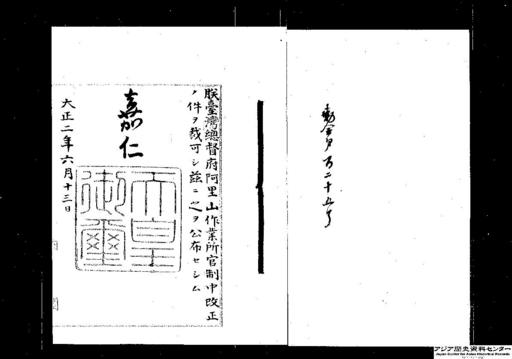 勅令第百二十五号
朕臺灣總督府阿里山作業所官制中改正
ノ件ヲ裁可シ茲ニ之ヲ公布セシム
嘉仁
天皇御璽
大正二年六月十三日
アジア歴史資料センター
Japan Center for Asian Historical Records